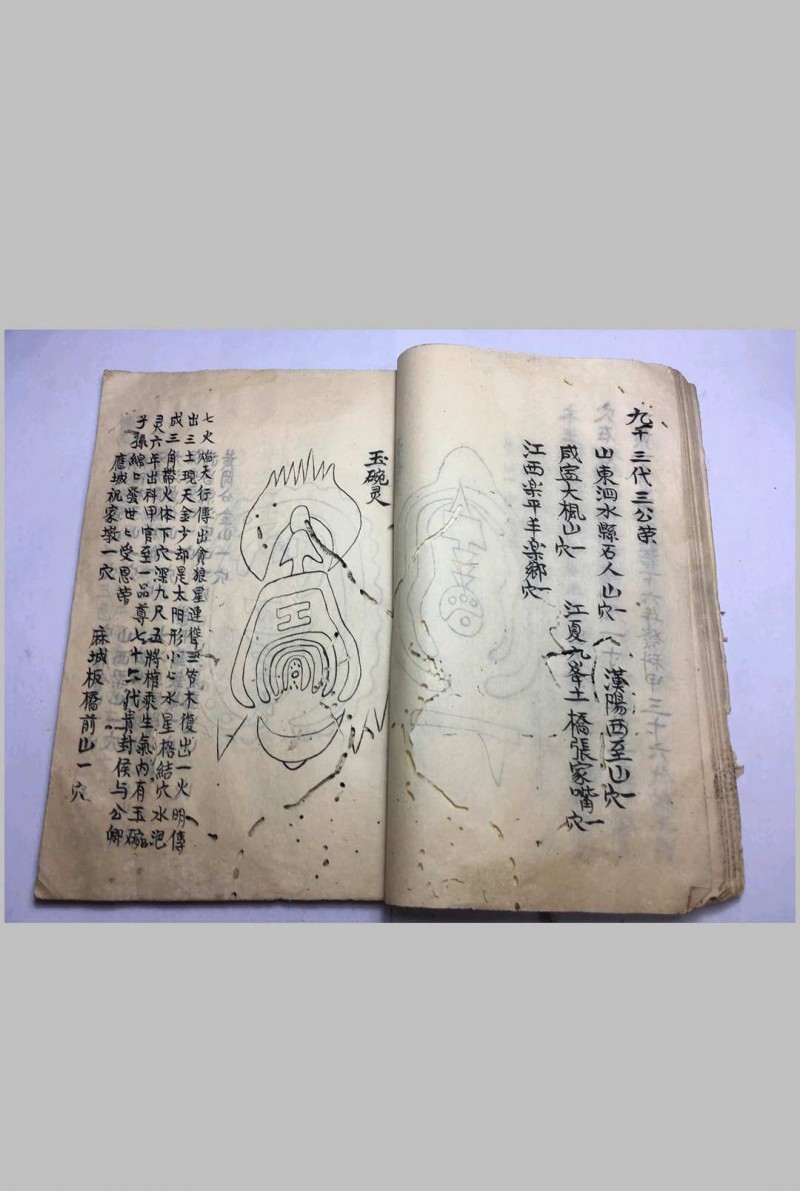 九千三代三公荣
山東泗水縣石人山一穴
漢陽西至山一穴
咸寧大楓山一穴
江夏九峯土橋張家嘴一穴
江西乐平羊乐鄉一穴
玉碗灵
王
七火焰天行傳出貪狼星連聳三节木復出一火明傳
出三土現天金少却是太阳形小心水星格結穴水泡
成三角帶火体下穴深九尺五將棺乘生氣内有玉碗
灵六年出科甲官至一品尊七十二代貴封侯与公卿
子孫綿〻發世〻受恩荣
應城祝家墩一穴
麻城板橋前山一穴